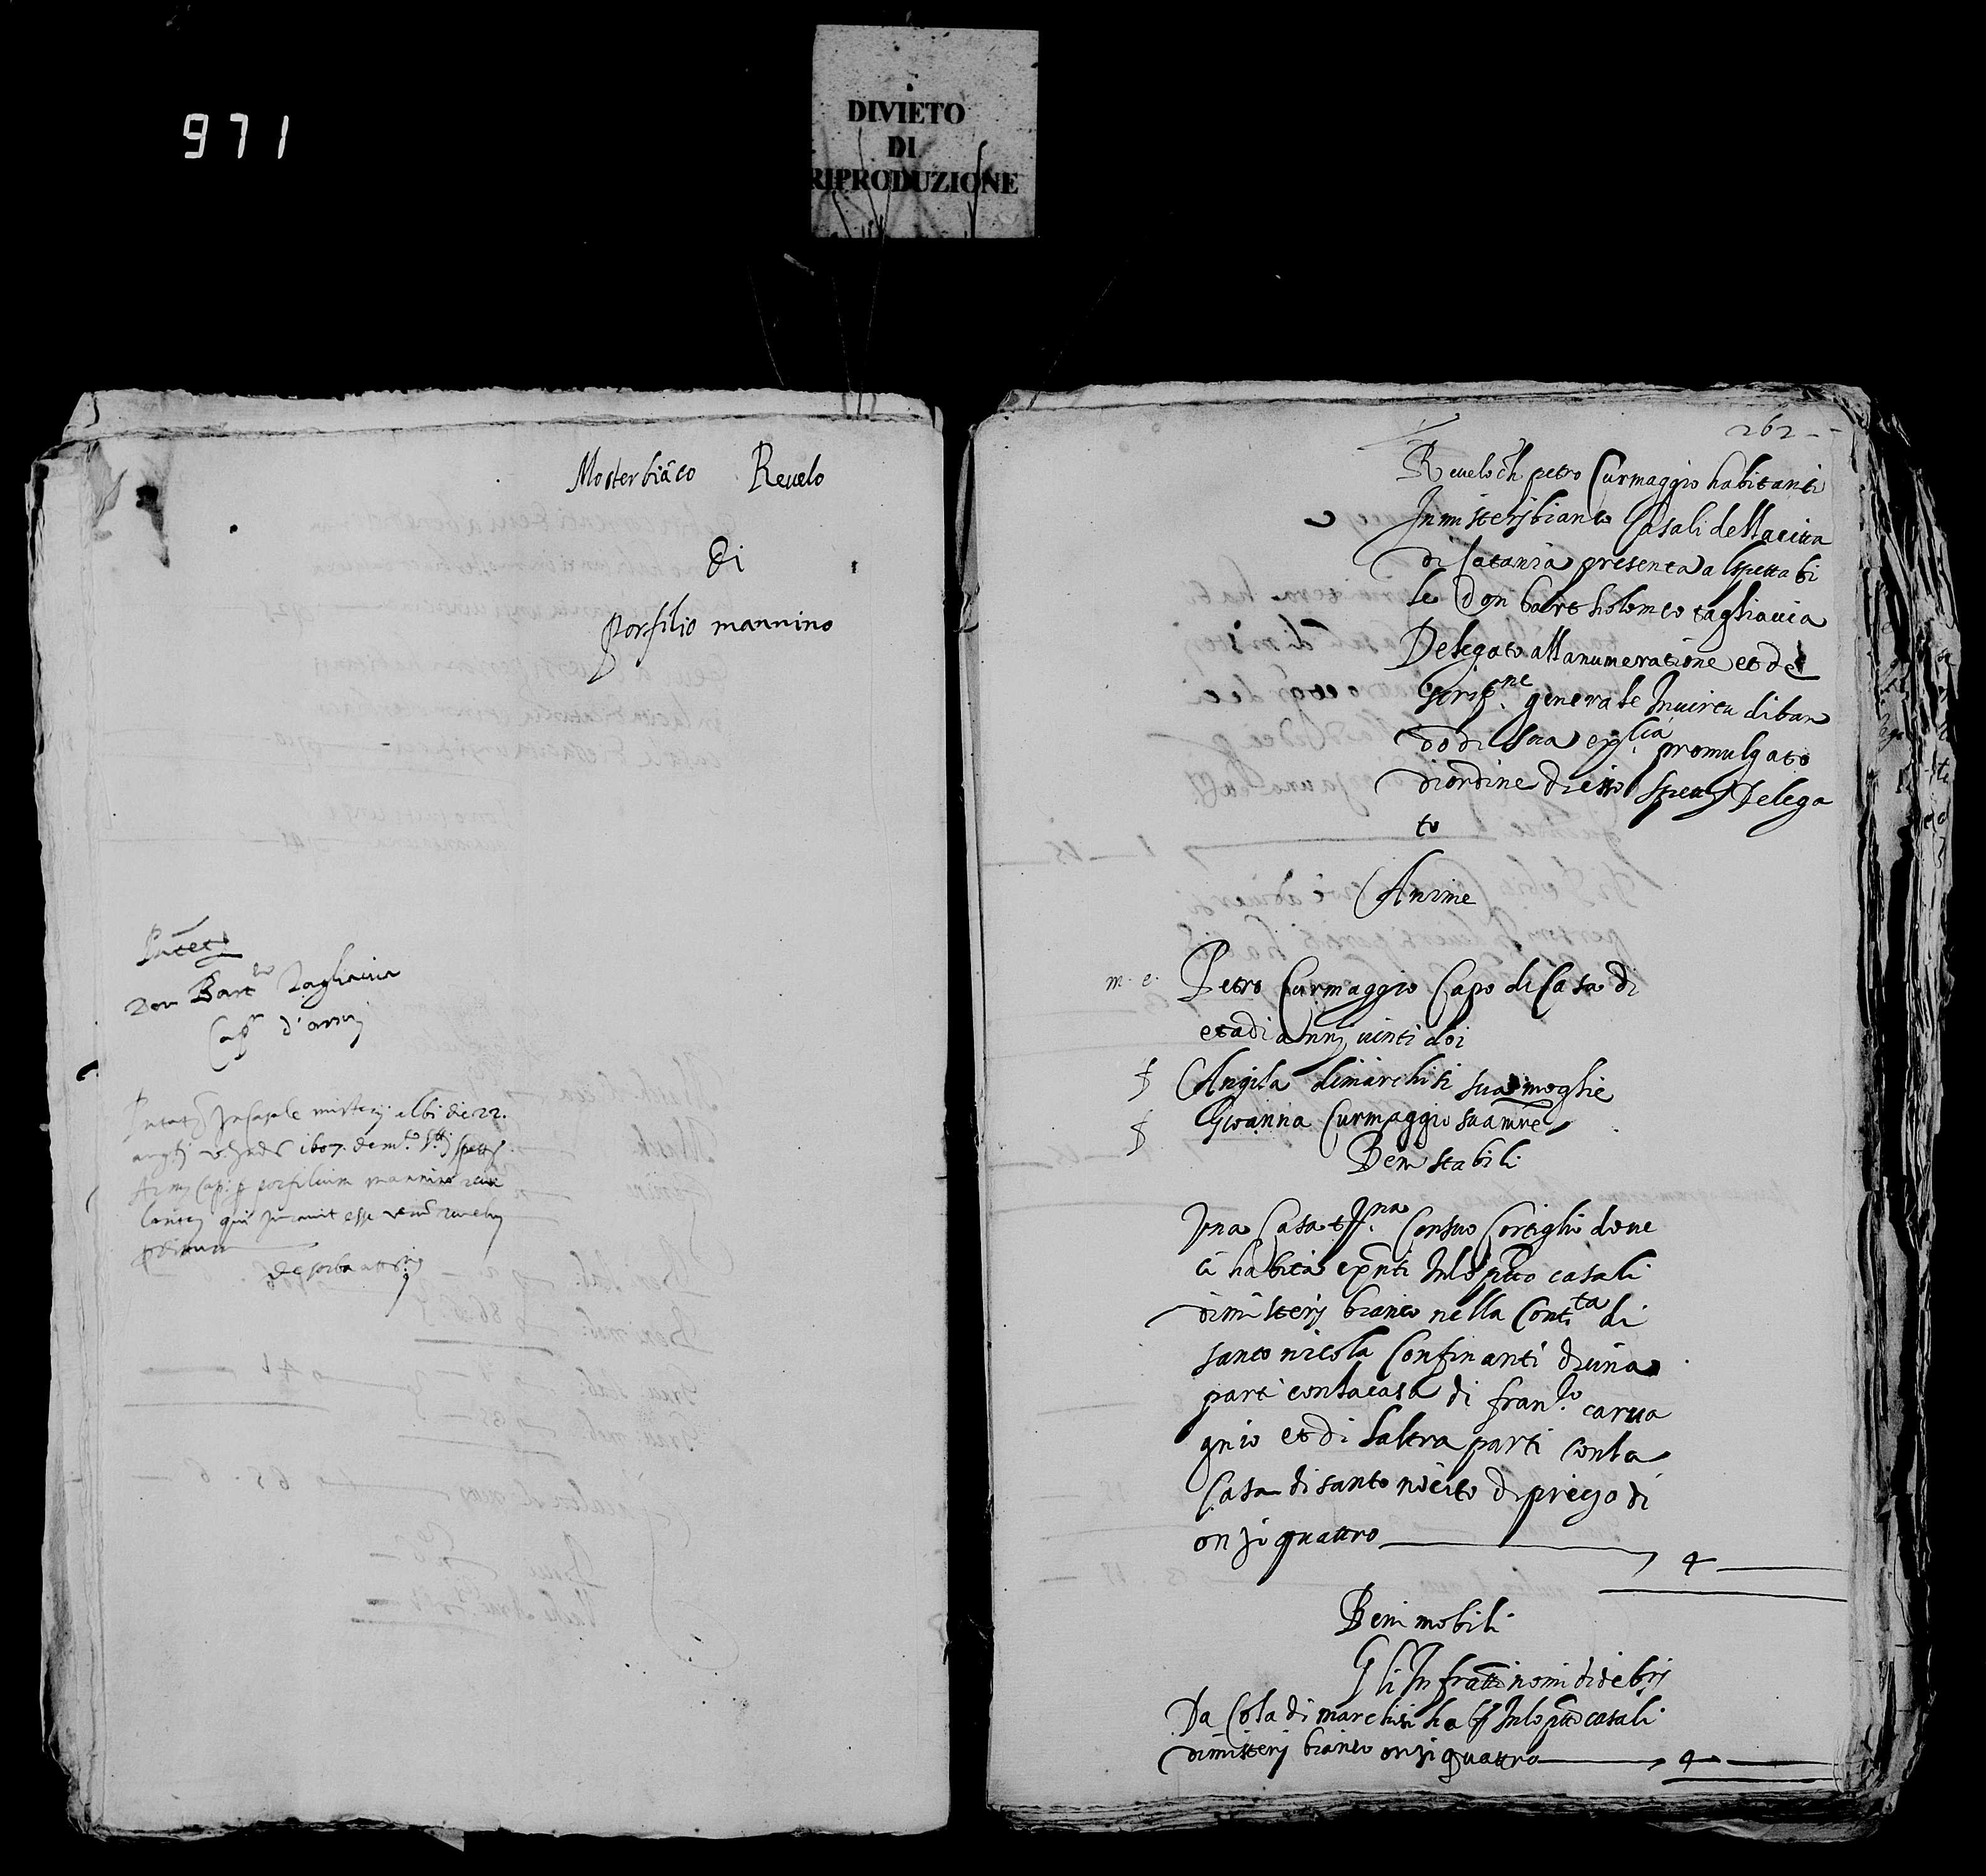 971
DIVIETO
DI
RIPRODUZIONE
Mosterbiãco Revelo
di
porfilio mannino
Don Bart.eo Tagliavia
Cap.n d'arm
casale misterij albi die 22.
1607. de m.to
Cap. p porfilium mannino
qui juravit esse
262
Revelo ch petro Curmaggio habitanti
In misterj bianco Casali della citta
di Catania presenta al spettabi
le Don bartholomeo tagliavia
Delegato alla numeratione et de
scrip.ne generale In virtu di ban
do di sua ex.lia promulgato
di ordine di esso spet. Delega
to
Anime
m. c. Petro Curmaggio Capo di Casa di
eta di annj vinti doi
f Angila di marchisi sua moglie
f Gioanna Curmaggio sua mre
Beni stabili
Una Casa t.na con suo Cortiglio dove
ci habita exnti In lo ptto casali
di misterj bianco nella Cont.ta di
santo nicola Confinanti di una
parti con la casa di fran.co carva
gnio et di laltra parti con la
Casa di santo di prezo di
onzi quattro 4
Beni mobili
Gli Infratti nomi di debj
Da Cola di marchisi ha In lo ptto casali
di misterj bianco onzi quattro 4